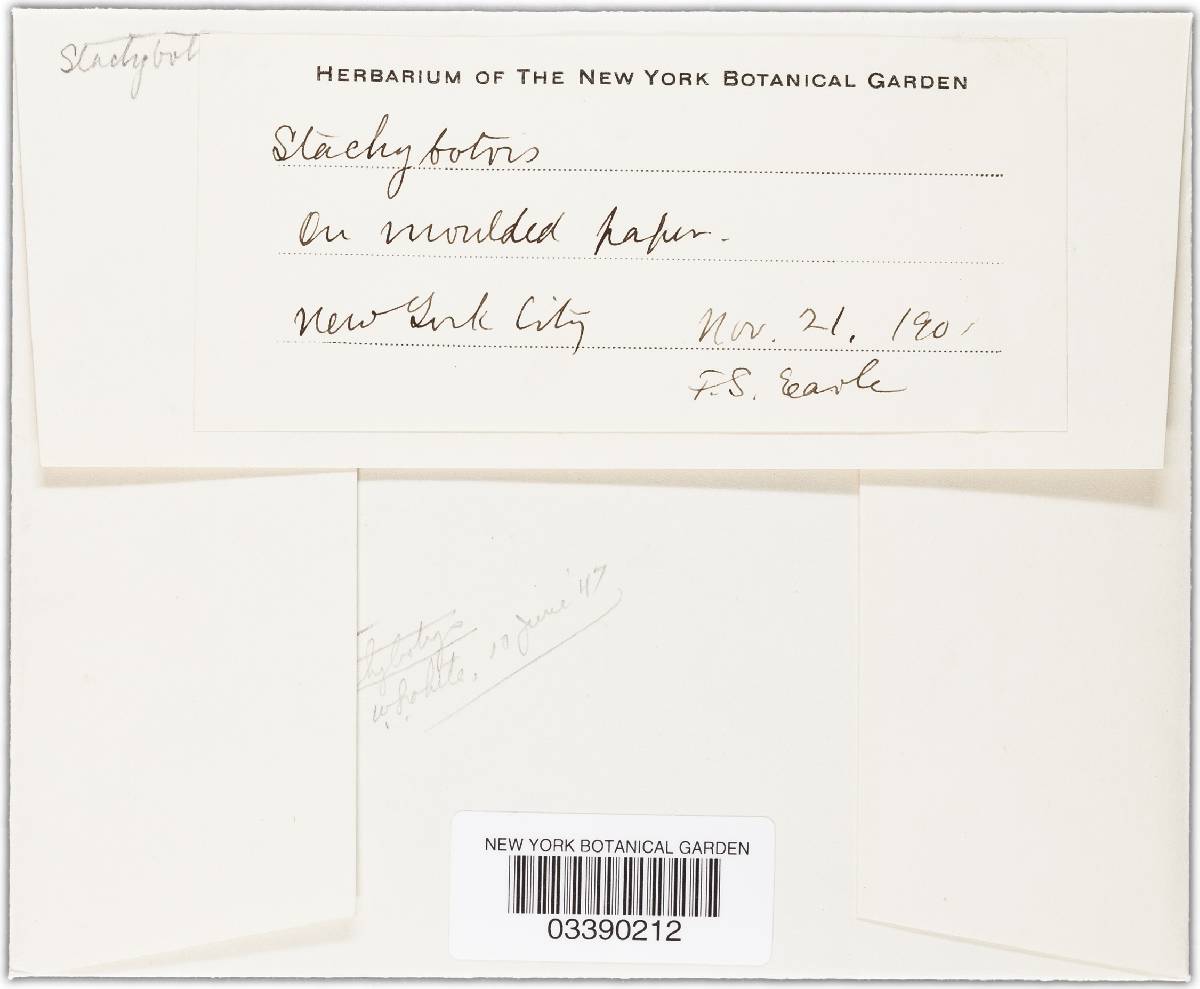 Stachybot
HERBARIUM OF THE NEW YORK BOTANICAL GARDEN
Stachybotris
On moulded paper.
New York City Nov. 21, 190
F.S. Earle
chybotrys
W. White, 10 June '47
NEW YORK BOTANICAL GARDEN
03390212